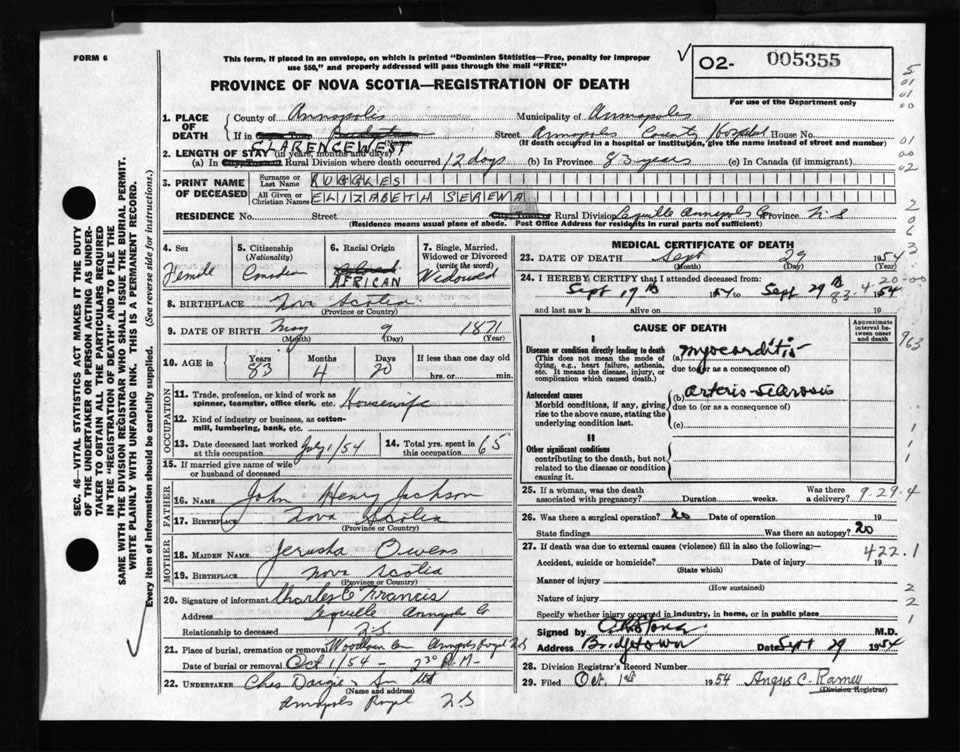 FORM 6
This form, if placed in an envelope, on which is printed "Dominion Statistics—Free, penalty for improper
use $50," and properly addressed will pass through the mail "FREE"
PROVINCE OF NOVA SCOTIA—REGISTRATION OF DEATH
O2- 005355
For use of the Department only
1. PLACE OF DEATH
County of Annapolis Municipality of Annapolis
If in Street Annapolis County Hospital House No.
(If death occurred in a hospital or institution, give the name instead of street and number)
CLARENCE WEST
2. LENGTH OF STAY (in years, months and days)
(a) In Rural Division where death occurred 12 days (b) In Province 83 years (c) In Canada (if immigrant)
3. PRINT NAME OF DECEASED
Surname or Last Name RUGGLES
All Given or Christian Names ELIZABETH SERENA
RESIDENCE No. Street City, Town or Rural Division Lequille Annapolis Co Province N.S
(Residence means usual place of abode. Post Office Address for residents in rural parts not sufficient)
4. Sex Female
5. Citizenship (Nationality) Canadian
6. Racial Origin Colored AFRICAN
7. Single, Married, Widowed or Divorced (write the word) Widowed
8. BIRTHPLACE Nova Scotia
(Province or Country)
9. DATE OF BIRTH May 9 1871
(Month) (Day) (Year)
10. AGE in Years 83 Months 4 Days 20 If less than one day old
hrs. or min.
OCCUPATION
11. Trade, profession, or kind of work as spinner, teamster, office clerk, etc. Housewife
12. Kind of industry or business, as cotton-mill, lumbering, bank, etc.
13. Date deceased last worked at this occupation July 1/54
14. Total yrs. spent in this occupation 65
15. If married give name of wife or husband of deceased
FATHER
16. NAME John Henry Jackson
17. BIRTHPLACE Nova Scotia
(Province or Country)
MOTHER
18. MAIDEN NAME Jerusha Owens
19. BIRTHPLACE Nova Scotia
(Province or Country)
20. Signature of informant Charles C Francis
Address Lequille Annapolis Co
Relationship to deceased N.S
21. Place of burial, cremation or removal Woodlawn Cem Annapolis Royal N.S
Date of burial or removal Oct 1/54 - 2 30 P.M-
22. UNDERTAKER Chas Dargie & Son Ltd
(Name and address)
Annapolis Royal N.S
MEDICAL CERTIFICATE OF DEATH
23. DATE OF DEATH Sept 29 1954
(Month) (Day) (Year)
24. I HEREBY CERTIFY that I attended deceased from:
Sept 17th 1954 to Sept 29th 1954
83.4.20.00
and last saw h alive on 19
CAUSE OF DEATH
Approximate interval between onset and death
I
Disease or condition directly leading to death
(This does not mean the mode of dying, e.g., heart failure, asthenia, etc. It means the disease, injury, or complication which caused death.)
(a) Myocarditis
due to (or as a consequence of)
Antecedent causes
Morbid conditions, if any, giving rise to the above cause, stating the underlying condition last.
(b) Arterio-sclerosis
due to (or as a consequence of)
(c)
II
Other significant conditions
contributing to the death, but not related to the disease or condition causing it.
25. If a woman, was the death associated with pregnancy? Duration weeks. Was there a delivery?
9.29.4
26. Was there a surgical operation? no Date of operation 19
State findings Was there an autopsy? no
27. If death was due to external causes (violence) fill in also the following:—
422.1
Accident, suicide or homicide? Date of injury 19
(State which)
Manner of injury
(How sustained)
Nature of injury
Specify whether injury occurred in industry, in home, or in public place
Signed by M.D.
Address Bridgetown Date Sept 29 1954
28. Division Registrar's Record Number
29. Filed Oct. 1st 1954 Angus C. Ramey
(Division Registrar)
SEC. 46—VITAL STATISTICS ACT MAKES IT THE DUTY
OF THE UNDERTAKER OR PERSON ACTING AS UNDER-
TAKER TO OBTAIN ALL THE PARTICULARS REQUIRED
IN THE "REGISTRATION OF DEATH" AND TO FILE THE
SAME WITH THE DIVISION REGISTRAR WHO SHALL ISSUE THE BURIAL PERMIT.
WRITE PLAINLY WITH UNFADING INK. THIS IS A PERMANENT RECORD.
Every item of information should be carefully supplied. (See reverse side for instructions.)
5
01
01
00
01
00
02
2
0
6
3
963
1
1
1
2
2
1